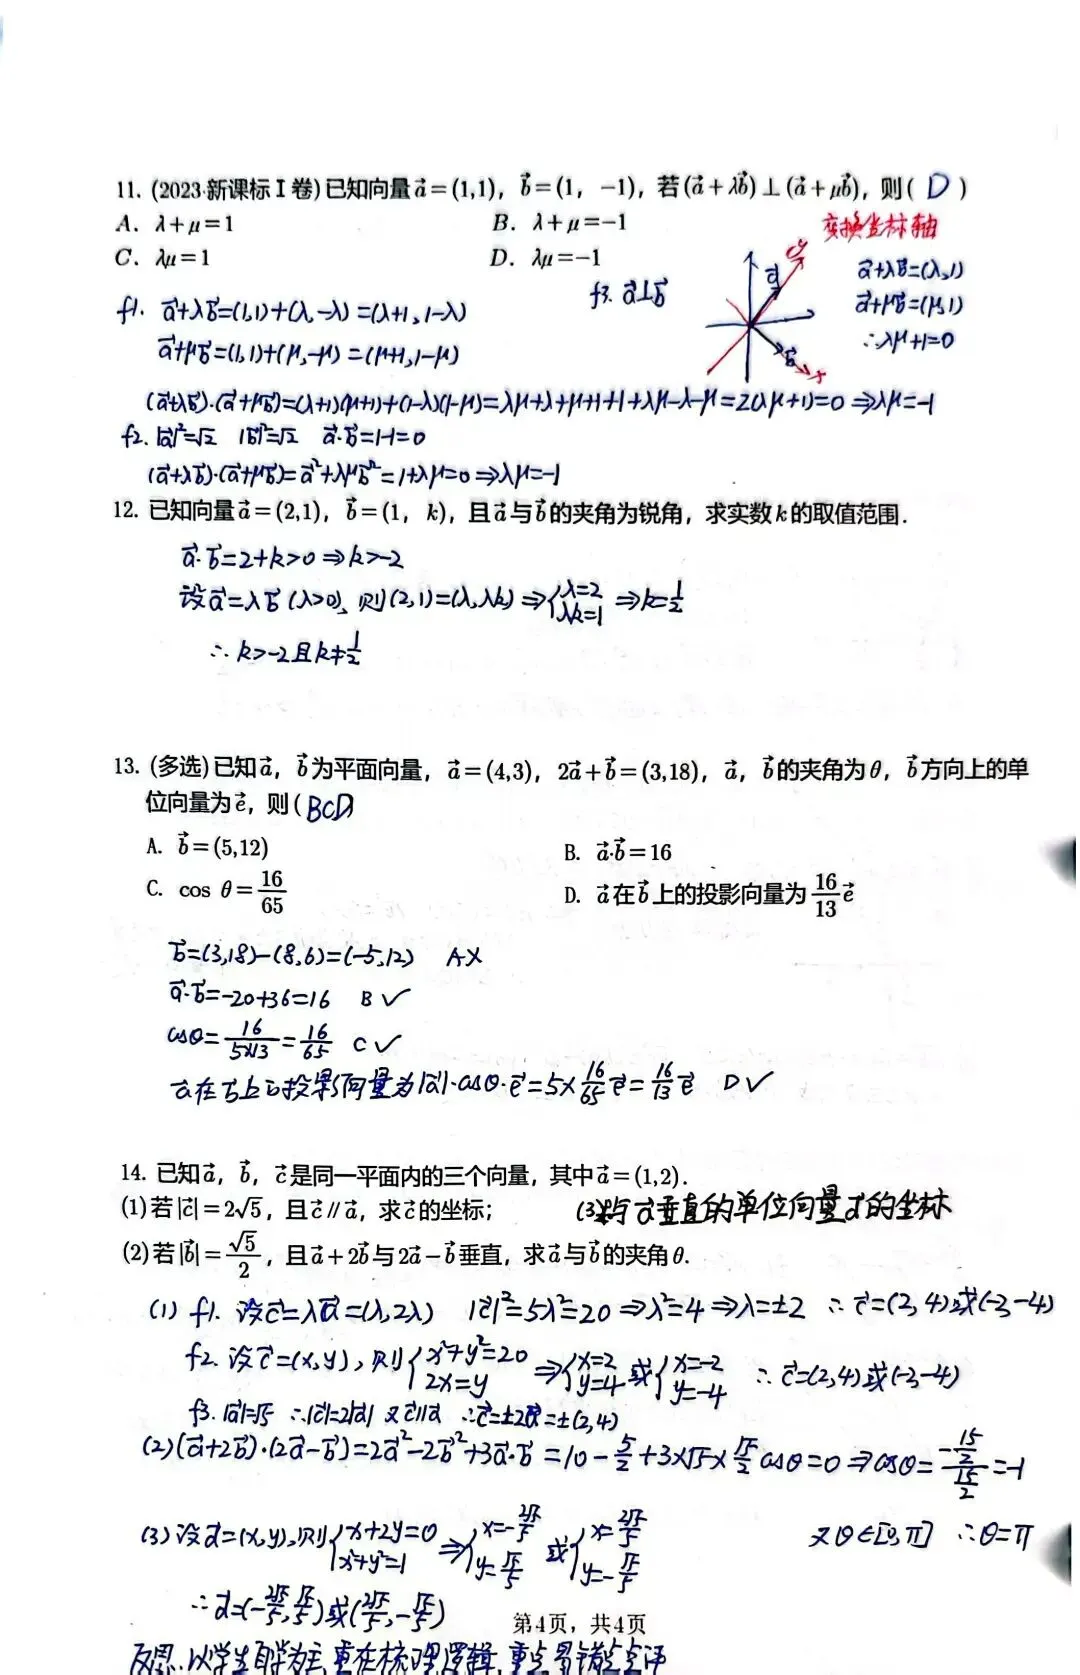 11. (2023·新课标Ⅰ卷)已知向量a⃗=(1,1)，b⃗=(1，-1)，若(a⃗+λb⃗)⊥(a⃗+μb⃗)，则( D )
A. λ+μ=1 B. λ+μ=-1
C. λμ=1 D. λμ=-1
变换坐标轴
f3. a⃗⊥b⃗
y a⃗ b⃗ x
a⃗+λb⃗=(λ,1)
a⃗+μb⃗=(μ,1)
∴λμ+1=0
f1. a⃗+λb⃗=(1,1)+(λ,-λ)=(λ+1,1-λ)
a⃗+μb⃗=(1,1)+(μ,-μ)=(μ+1,1-μ)
(a⃗+λb⃗)·(a⃗+μb⃗)=(λ+1)(μ+1)+(1-λ)(1-μ)=λμ+λ+μ+1+1+λμ-λ-μ=2(λμ+1)=0⇒λμ=-1
f2. |a⃗|²=√2 |b⃗|²=√2 a⃗·b⃗=1-1=0
(a⃗+λb⃗)·(a⃗+μb⃗)=a⃗²+λμb⃗²=1+λμ=0⇒λμ=-1
12. 已知向量a⃗=(2,1)，b⃗=(1，k)，且a⃗与b⃗的夹角为锐角，求实数k的取值范围.
a⃗·b⃗=2+k>0⇒k>-2
设a⃗=λb⃗(λ>0)，则(2,1)=(λ,λk)⇒{λ=2 λk=1 ⇒k=1/2
∴k>-2且k≠1/2
13. (多选)已知a⃗，b⃗为平面向量，a⃗=(4,3)，2a⃗+b⃗=(3,18)，a⃗，b⃗的夹角为θ，b⃗方向上的单
位向量为e⃗，则( BCD )
A. b⃗=(5,12) B. a⃗·b⃗=16
C. cos θ=16/65 D. a⃗在b⃗上的投影向量为16/13 e⃗
b⃗=(3,18)-(8,6)=(-5,12) A×
a⃗·b⃗=-20+36=16 B✓
cosθ=16/(5×13)=16/65 C✓
a⃗在b⃗上的投影向量为|a⃗|·cosθ·e⃗=5×16/65 e⃗=16/13 e⃗ D✓
14. 已知a⃗，b⃗，c⃗是同一平面内的三个向量，其中a⃗=(1,2).
(1)若|c⃗|=2√5，且c⃗∥a⃗，求c⃗的坐标； (3)求与a⃗垂直的单位向量d⃗的坐标
(2)若|b⃗|=√5/2，且a⃗+2b⃗与2a⃗-b⃗垂直，求a⃗与b⃗的夹角θ.
(1) f1. 设c⃗=λa⃗=(λ,2λ) |c⃗|²=5λ²=20⇒λ²=4⇒λ=±2 ∴c⃗=(2,4)或(-2,-4)
f2. 设c⃗=(x,y)，则{x²+y²=20 2x=y ⇒{x=2 y=4 或{x=-2 y=-4 ∴c⃗=(2,4)或(-2,-4)
f3. |a⃗|=√5 ∴|c⃗|=2|a⃗| 又c⃗∥a⃗ ∴c⃗=±2a⃗=±(2,4)
(2)(a⃗+2b⃗)·(2a⃗-b⃗)=2a⃗²-2b⃗²+3a⃗·b⃗=10-5/2+3×√5×√5/2 cosθ=0⇒cosθ=(-15/2)/(15/2)=-1
又θ∈[0,π] ∴θ=π
(3)设d⃗=(x,y)，则{x+2y=0 x²+y²=1 ⇒{x=-2√5/5 y=√5/5 或{x=2√5/5 y=-√5/5
∴d⃗=(-2√5/5,√5/5)或(2√5/5,-√5/5)
第4页，共4页
反思：以学生自学为主，重在梳理逻辑，重点易错点点评